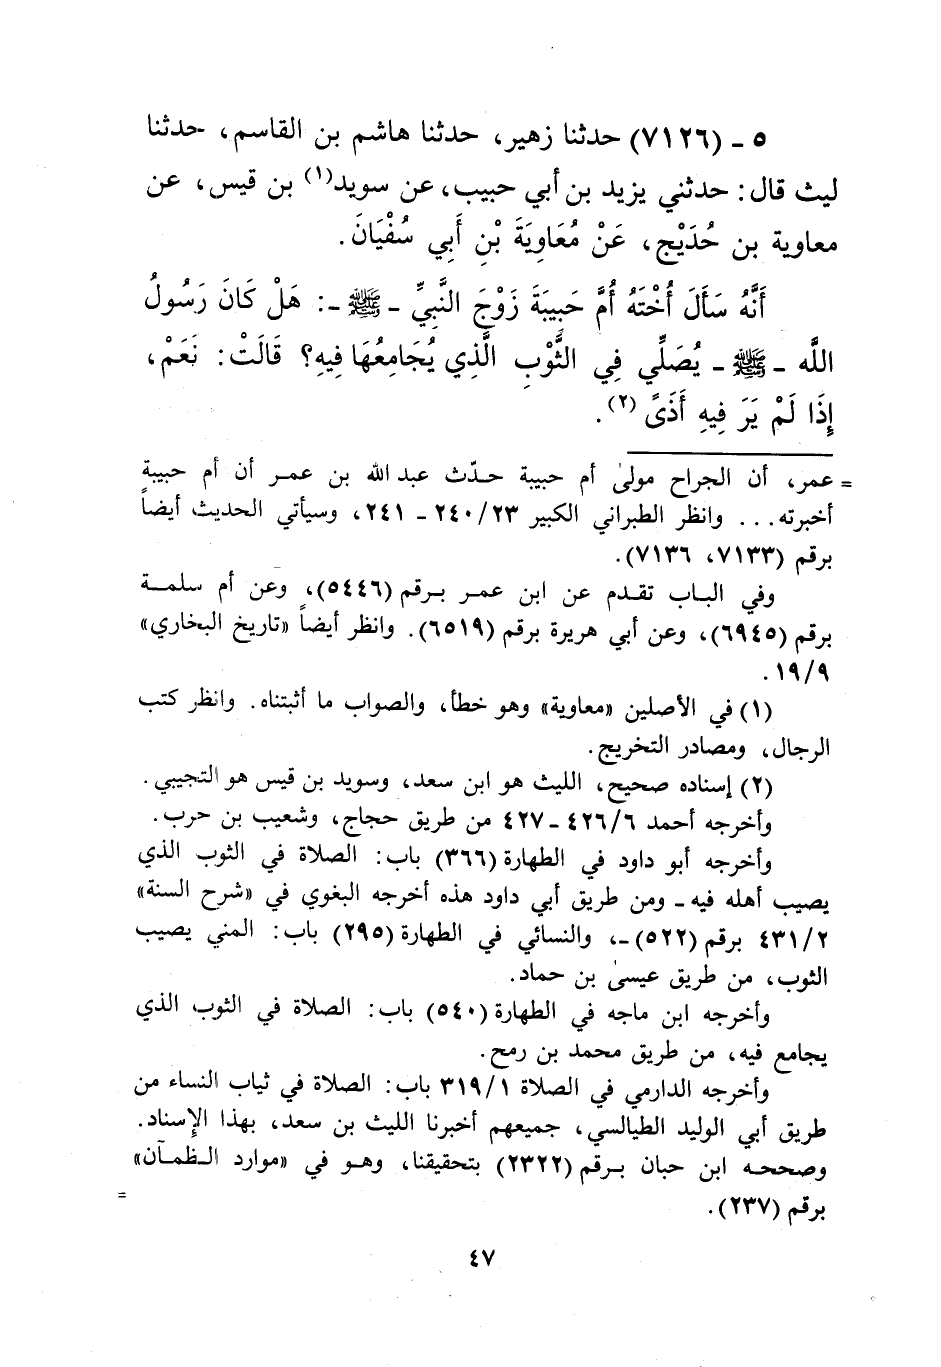 ٥ ـ (٧١٢٦) حدثنا زهير، حدثنا هاشم بن القاسم، حدثنا
ليث قال: حدثني يزيد بن أبي حبيب، عن سويد(١) بن قيس، عن
معاوية بن حُدَيْج، عَنْ مُعَاوِيَةَ بْنِ أَبِي سُفْيَانَ.
أَنَّهُ سَأَلَ أُخْتَهُ أُمَّ حَبِيبَةَ زَوْجَ النَّبِيِّ ـ ﷺ ـ: هَلْ كَانَ رَسُولُ
اللَّه ـ ﷺ ـ يُصَلِّي فِي الثَّوْبِ الَّذِي يُجَامِعُهَا فِيهِ؟ قَالَتْ: نَعَمْ،
إِذَا لَمْ يَرَ فِيهِ أَذًى (٢).
= عمر، أن الجراح مولىٰ أم حبيبة حدّث عبد الله بن عمر أن أم حبيبة
أخبرته... وانظر الطبراني الكبير ٢٣/٢٤٠ ـ ٢٤١، وسيأتي الحديث أيضاً
برقم (٧١٣٣، ٧١٣٦).
وفي الباب تقدم عن ابن عمر برقم (٥٤٤٦)، وعن أم سلمة
برقم (٦٩٤٥)، وعن أبي هريرة برقم (٦٥١٩). وانظر أيضاً «تاريخ البخاري»
٩/١٩.
(١) في الأصلين «معاوية» وهو خطأ، والصواب ما أثبتناه. وانظر كتب
الرجال، ومصادر التخريج.
(٢) إسناده صحيح، الليث هو ابن سعد، وسويد بن قيس هو التجيبي.
وأخرجه أحمد ٦/٤٢٦ ـ ٤٢٧ من طريق حجاج، وشعيب بن حرب.
وأخرجه أبو داود في الطهارة (٣٦٦) باب: الصلاة في الثوب الذي
يصيب أهله فيه ـ ومن طريق أبي داود هذه أخرجه البغوي في «شرح السنة»
٢/٤٣١ برقم (٥٢٢) ـ، والنسائي في الطهارة (٢٩٥) باب: المني يصيب
الثوب، من طريق عيسىٰ بن حماد.
وأخرجه ابن ماجه في الطهارة (٥٤٠) باب: الصلاة في الثوب الذي
يجامع فيه، من طريق محمد بن رمح.
وأخرجه الدارمي في الصلاة ١/٣١٩ باب: الصلاة في ثياب النساء من
طريق أبي الوليد الطيالسي، جميعهم أخبرنا الليث بن سعد، بهذا الإسناد.
وصححه ابن حبان برقم (٢٣٢٢) بتحقيقنا، وهو في «موارد الظمآن»
برقم (٢٣٧). =
٤٧